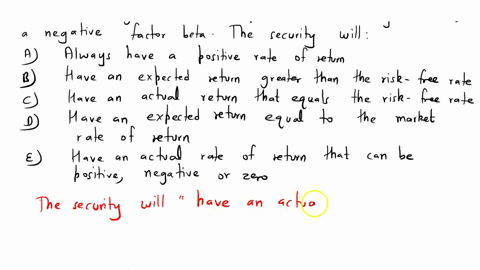 a negative factor beta. The security will:
A) Always have a positive rate of return
B) Have an expected return greater than the risk-free rate
C) Have an actual return that equals the risk-free rate
D) Have an expected return equal to the market
rate of return
E) Have an actual rate of return that can be
positive, negative or zero
The security will " have an actua